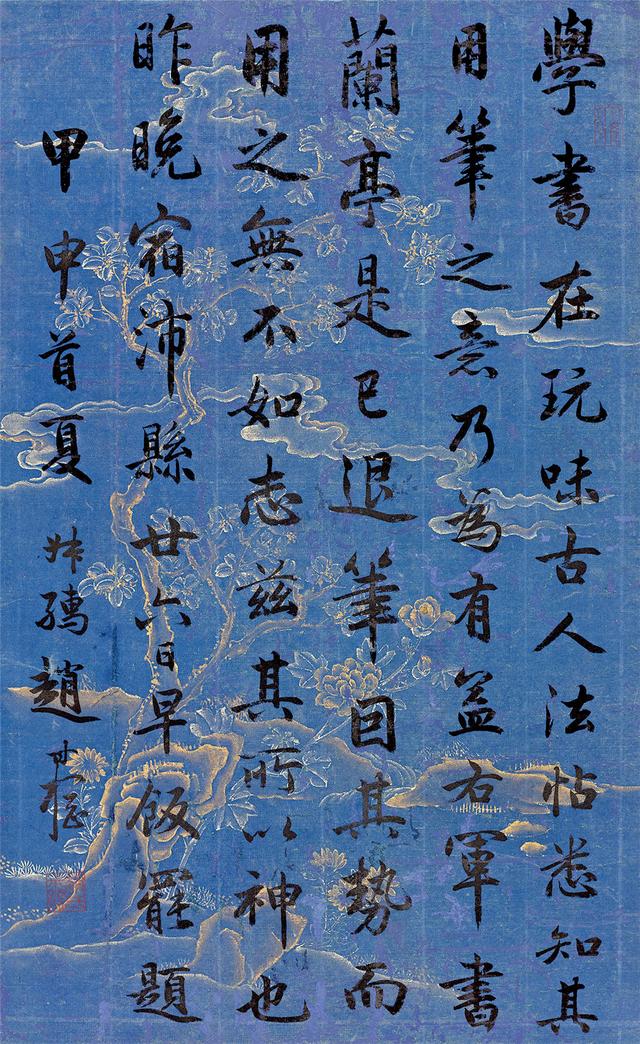 學書在玩味古人法帖悉知其
用筆之意乃為有益右軍書
蘭亭是已退筆因其勢而
用之無不如志茲其所以神也
昨晚宿沛縣廿六日早飯罷題
甲申首夏 叔孺趙時棡